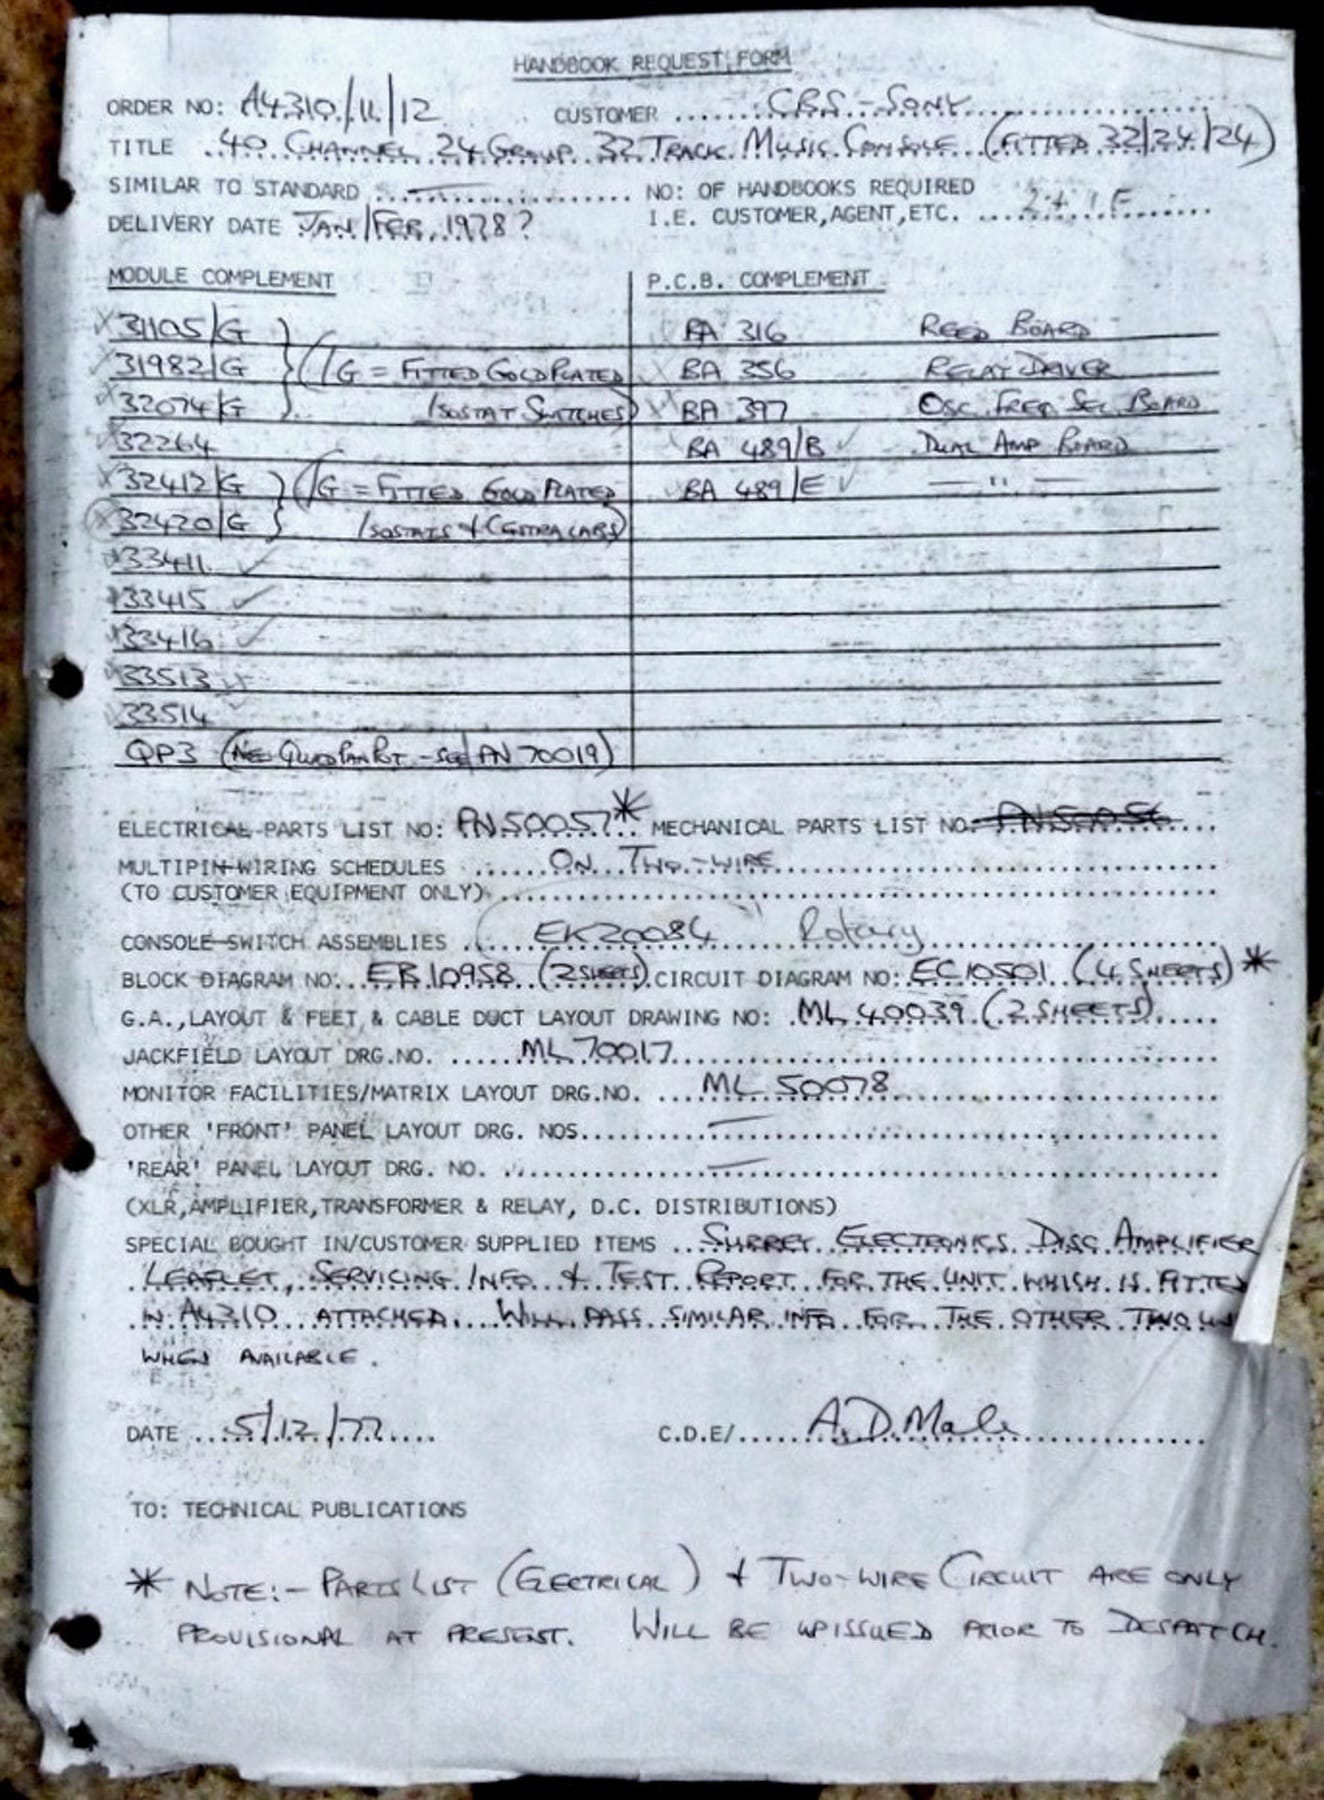 HANDBOOK REQUEST FORM
ORDER NO: A4310/11/12 CUSTOMER ......C.B.S.-SONY..................
TITLE ..40 CHANNEL 24 GROUP 32 TRACK MUSIC CONSOLE (FITTED 32/24/24)
SIMILAR TO STANDARD ..—.................. NO: OF HANDBOOKS REQUIRED
DELIVERY DATE JAN/FEB. 1978? I.E. CUSTOMER,AGENT,ETC. ....2+1F.......
MODULE COMPLEMENT P.C.B. COMPLEMENT
31105/G BA 316 REED BOARD
31982/G (/G = FITTED GOLD PLATED BA 356 RELAY DRIVER
32074/G ISOSTAT SWITCHES) BA 397 OSC FREQ SEL BOARD
32264 BA 489/B ✓ DUAL AMP BOARD
32412/G (/G = FITTED GOLD PLATED BA 489/E ✓ — " —
32420/G ISOSTATS &
33411 ✓
33415 ✓
33416 ✓
33513 ✓
33514
QP3 (NEW QUAD PAN POT - SEE PN 70019)
ELECTRICAL PARTS LIST NO: PN.50057*.. MECHANICAL PARTS LIST NO. PN50056....
MULTIPIN WIRING SCHEDULES ......ON TWO-WIRE..............................
(TO CUSTOMER EQUIPMENT ONLY)..............................................
CONSOLE SWITCH ASSEMBLIES ......EK20084........ Rotary....................
BLOCK DIAGRAM NO:...EB10958 (2 SHEETS).CIRCUIT DIAGRAM NO: EC10501 (4 SHEETS) *
G.A.,LAYOUT & FEET & CABLE DUCT LAYOUT DRAWING NO: .ML40039 (2 SHEETS).....
JACKFIELD LAYOUT DRG.NO. ......ML70017....................................
MONITOR FACILITIES/MATRIX LAYOUT DRG.NO. ....ML 50078.....................
OTHER 'FRONT' PANEL LAYOUT DRG. NOS..........—............................
'REAR' PANEL LAYOUT DRG. NO. ................—............................
(XLR,AMPLIFIER,TRANSFORMER & RELAY, D.C. DISTRIBUTIONS)
SPECIAL BOUGHT IN/CUSTOMER SUPPLIED ITEMS ..SURREY ELECTRONICS DISC AMPLIFIER
LEAFLET, SERVICING INFO & TEST REPORT FOR THE UNIT WHISH IS FITTED
IN A4310 ATTACHED. WILL PASS SIMILAR INFO FOR THE OTHER TWO
WHEN AVAILABLE.
DATE ...5/12/77..... C.D.E/......A.D.Male.............
TO: TECHNICAL PUBLICATIONS
* NOTE:- PARTS LIST (ELECTRICAL) & TWO-WIRE CIRCUIT ARE ONLY
PROVISIONAL AT PRESENT. WILL BE UPISSUED PRIOR TO DESPATCH.